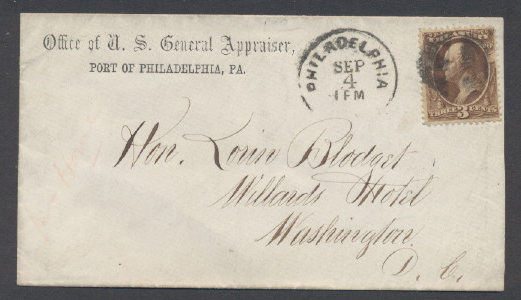 Office of U. S. General Appraiser,
PORT OF PHILADELPHIA, PA.
PHILADELPHIA
SEP
4
1 PM
TREASURY
THREE 3 CENTS
Hon. Lorin Blodget
Willards Hotel
Washington
D. C.